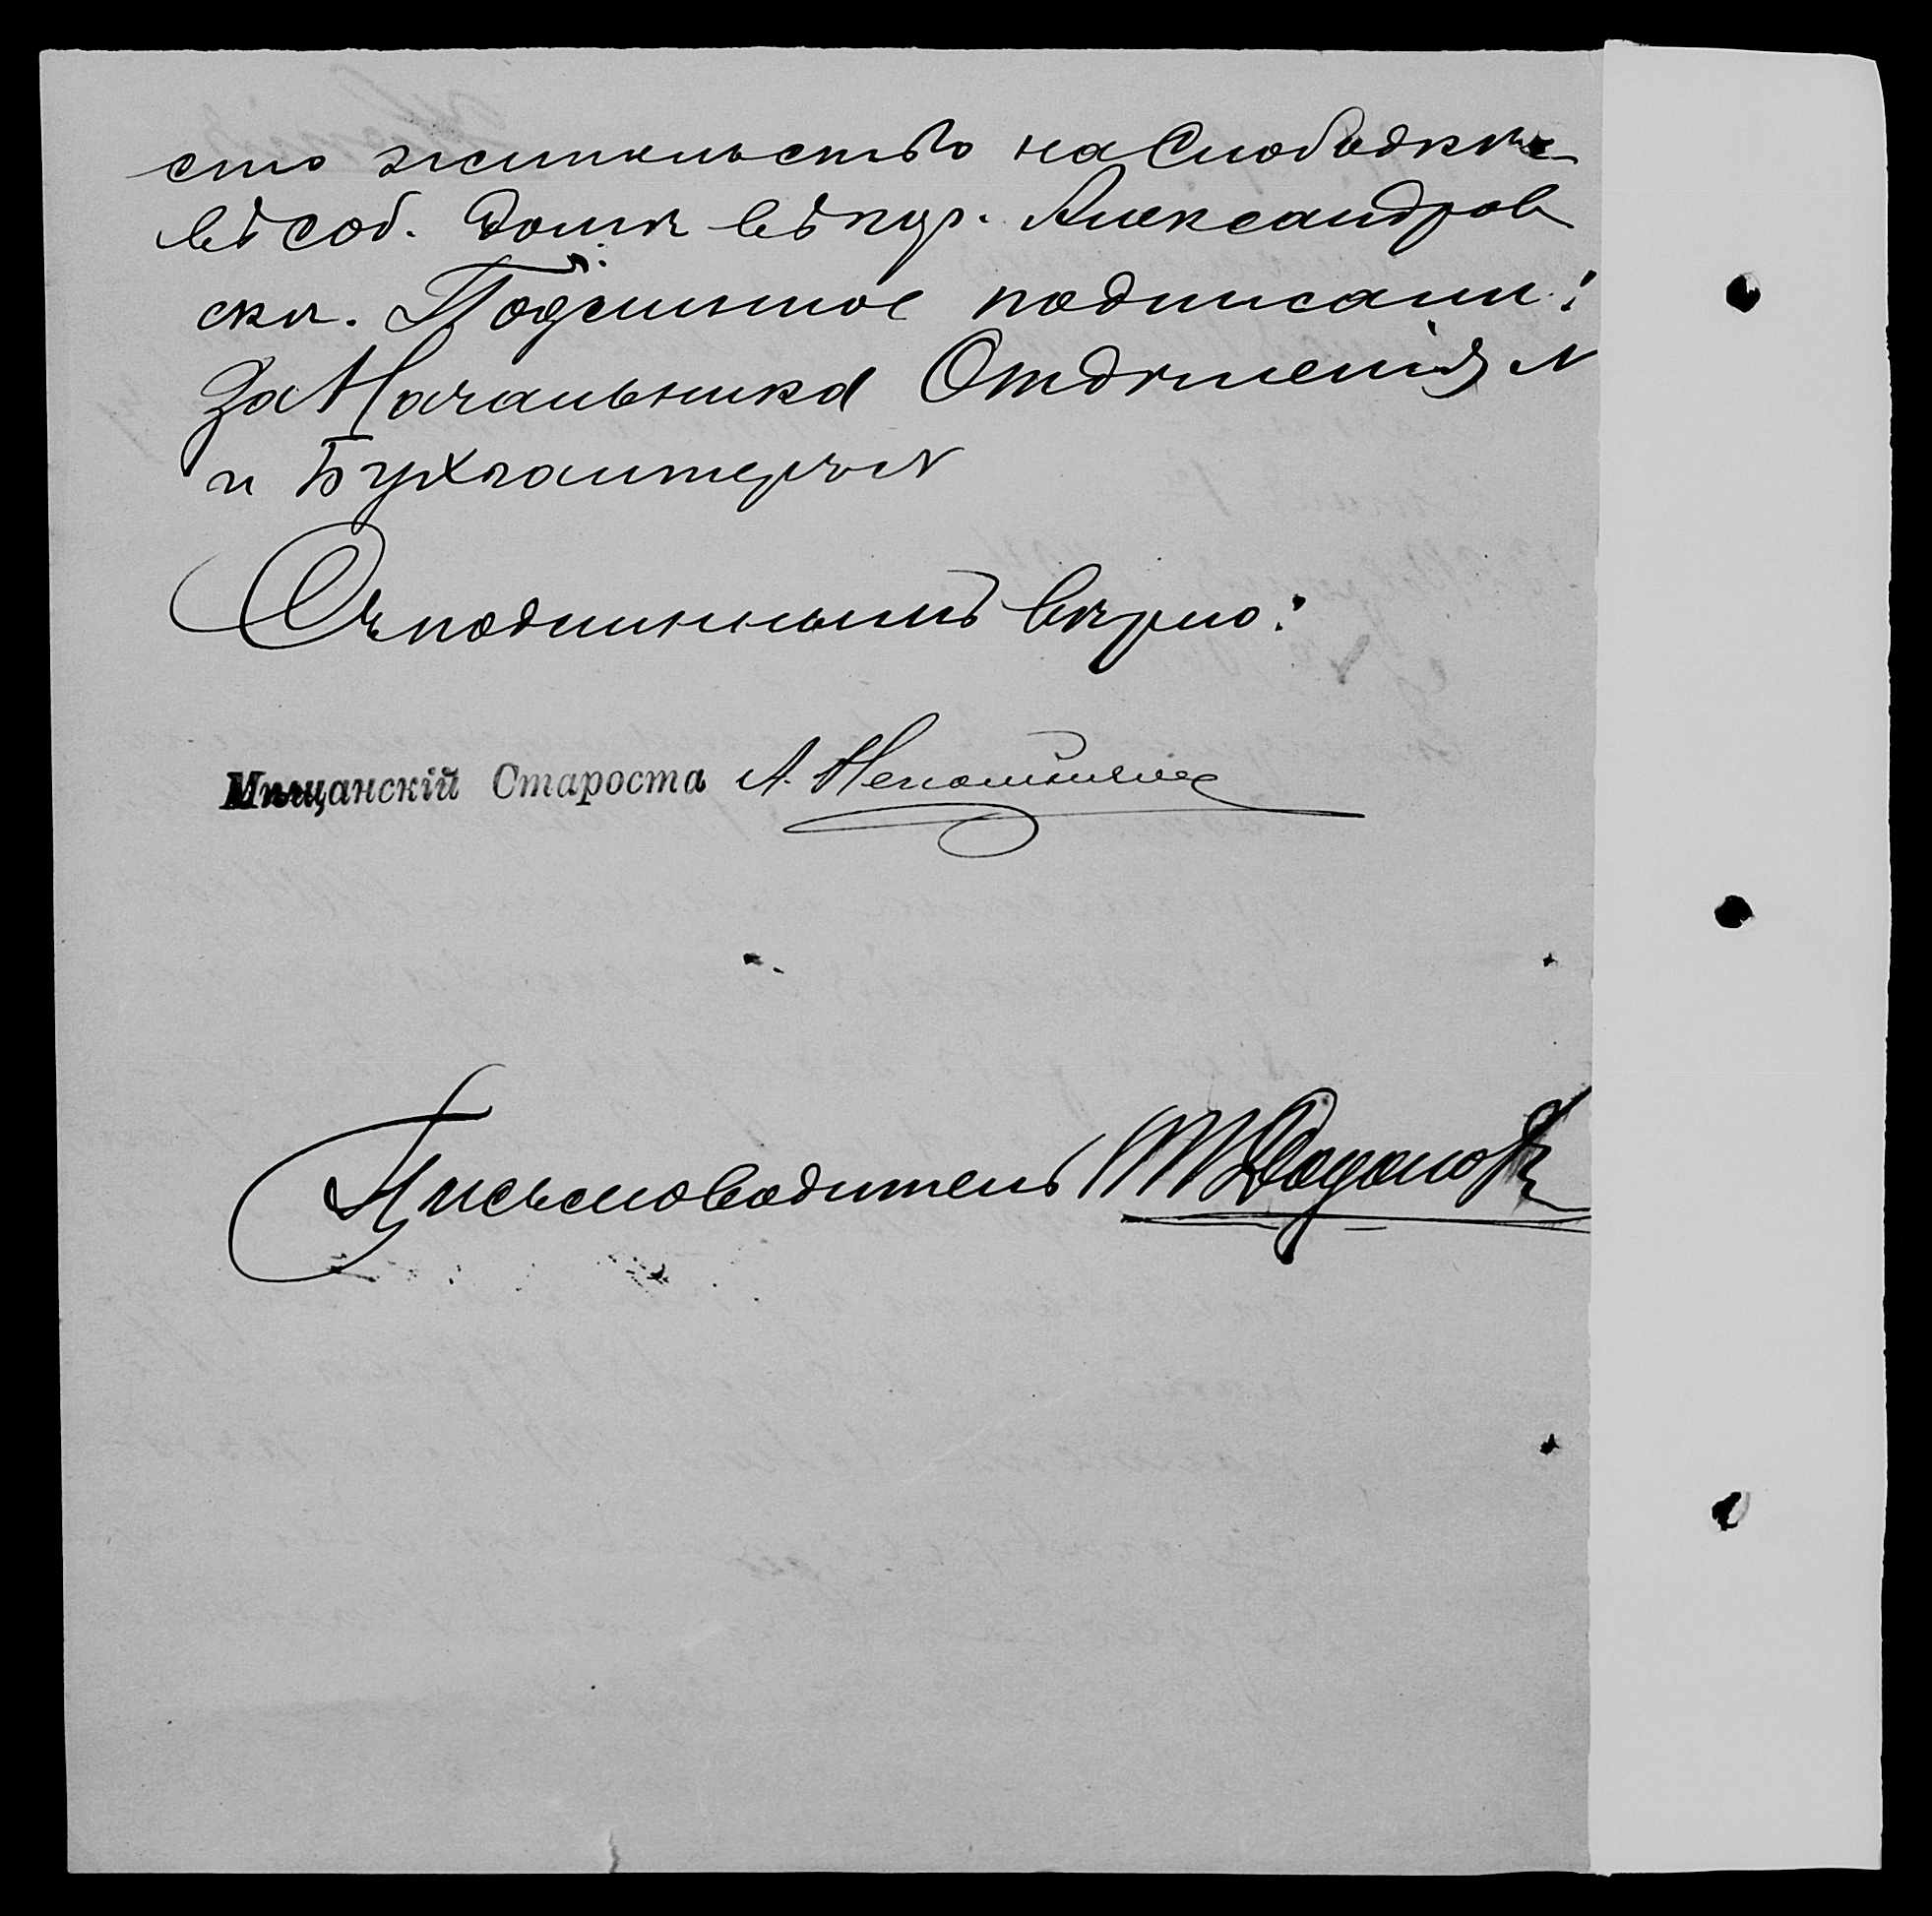 сто жительство на Слободкѣ
въ соб. домѣ въ пгр. Александров
скѣ. Подлинное подписали:
За Начальника Отдѣленія N
и Бухгалтеръ N
Съ подлиннымъ вѣрно:
Мѣщанскій Староста А. Непомнящ
Письмоводитель